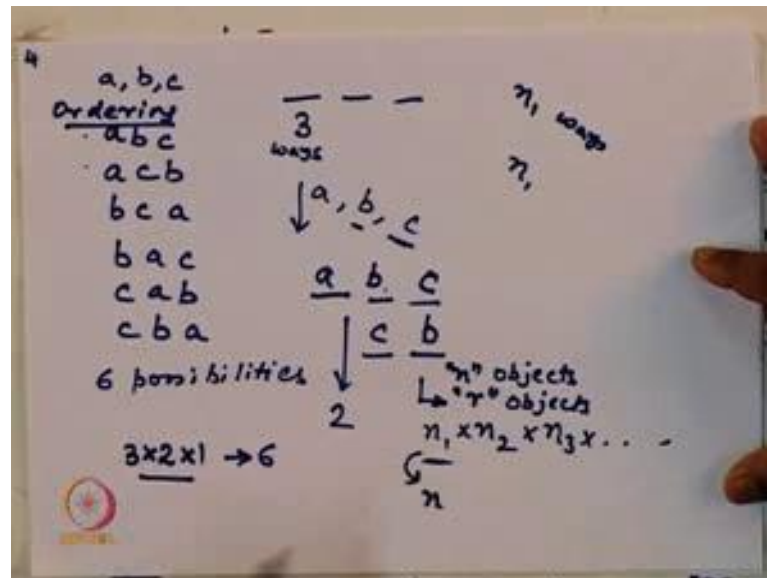 4
a, b, c
Ordering
abc
acb
bca
bac
cab
cba
6 possibilities
3×2×1 → 6
3
ways
a, b, c
a b c
c b
2
n, ways
n,
"n" objects
"r" objects
n₁ × n₂ × n₃ × . . . .
n